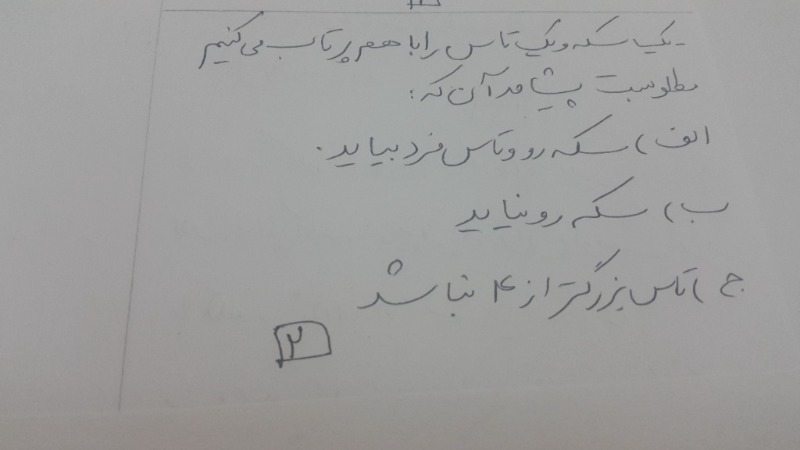 - یک سکه و یک تاس را با هم پرتاب می کنیم
مطلوبست پیشامد آن که :
الف) سکه رو و تاس فرد بیاید.
ب) سکه رو نیاید
ج) تاس بزرگتر از ۴ نباشد
۲